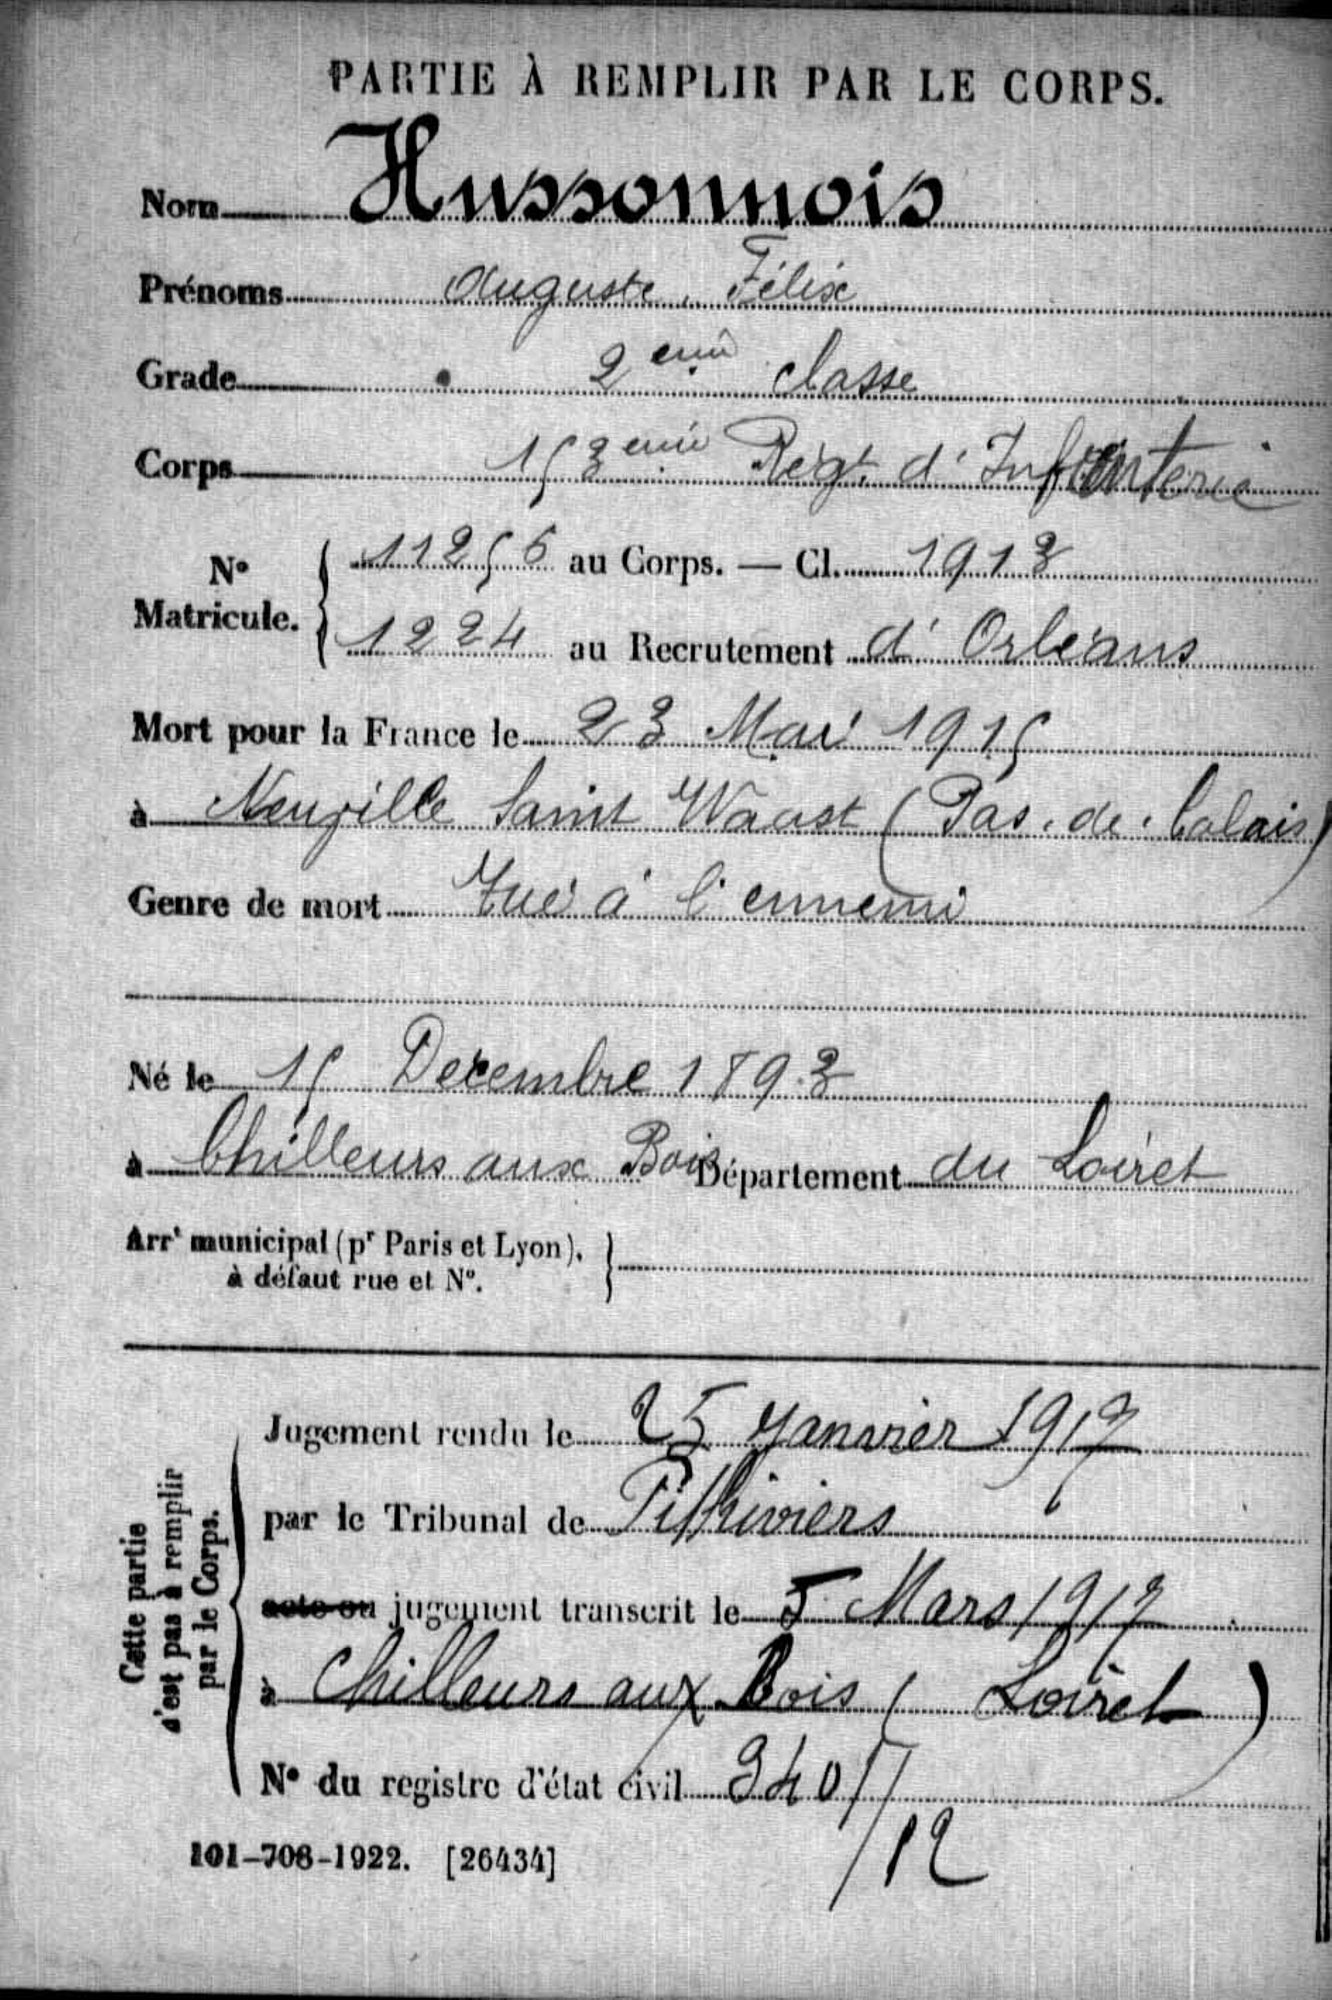 PARTIE À REMPLIR PAR LE CORPS.
Nom Hussonnois
Prénoms Auguste, Félix
Grade 2eme classe
Corps 153eme Régt. d'Infanterie
N° Matricule. { 11256 au Corps. — Cl. 1913
1224 au Recrutement d'Orléans
Mort pour la France le 23 Mai 1915
à Neuville Saint Waast (Pas-de-Calais)
Genre de mort Tué à l'ennemi
Né le 15 Décembre 1893
à Chilleurs aux Bois Département du Loiret
Arrt municipal (pr Paris et Lyon),
à défaut rue et N°.
Cette partie
n'est pas à remplir
par le Corps.
Jugement rendu le 25 Janvier 1917
par le Tribunal de Pithiviers
acte ou jugement transcrit le 5 Mars 1917
à Chilleurs aux Bois (Loiret)
N° du registre d'état civil 340
/12
101-708-1922. [26434]